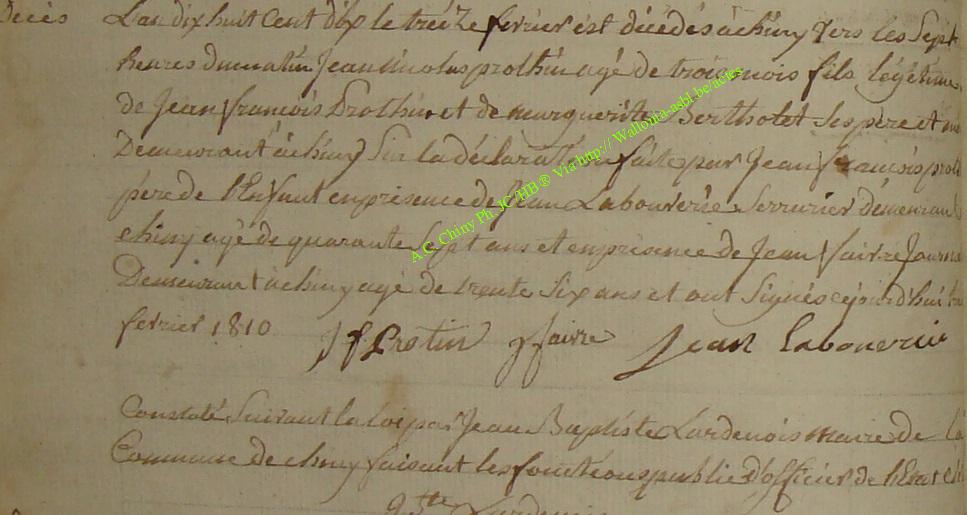 décès L'an dix huit cent dix le treize fevrier est décédés à chiny vers les Sept
heures du matin Jean nicolas prothin agé de trois mois fils légétime
de Jean françois Prothin et de margueritte Bertholet Ses père et
Demeurant à chiny Sur la déclaration faite par Jean françois prot
père de l'Enfant en présence de Jean Labouverie Serrurier démeurant
chiny agé de quarante Sept ans et en présence de Jean faivre Journa
Demeurant à chiny agé de trente Six ans et ont Signés cejourd'hui
fevrier 1810
J f Protin J faivre Jean Labouverie
Constaté Suivant la loi par Jean Baptiste Lardenois maire de la
Commune de chiny faisant les fonctions public d'officier de l'Etat
Lardenois
A.G. Chiny Ph. JC/HB ® Via http:// Wallonia-asbl.be/actes